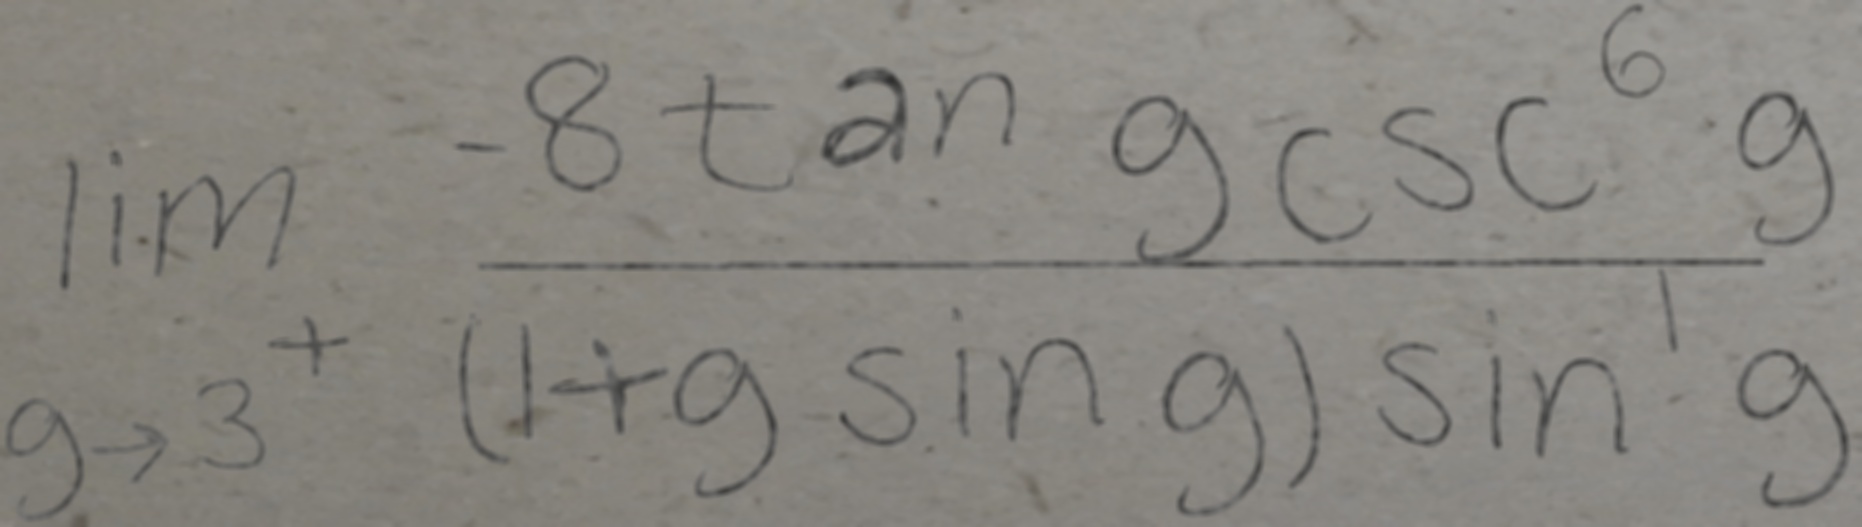 lim -8 tan g csc^6 g
g→3^+ (1+g sin g) sin^1 g